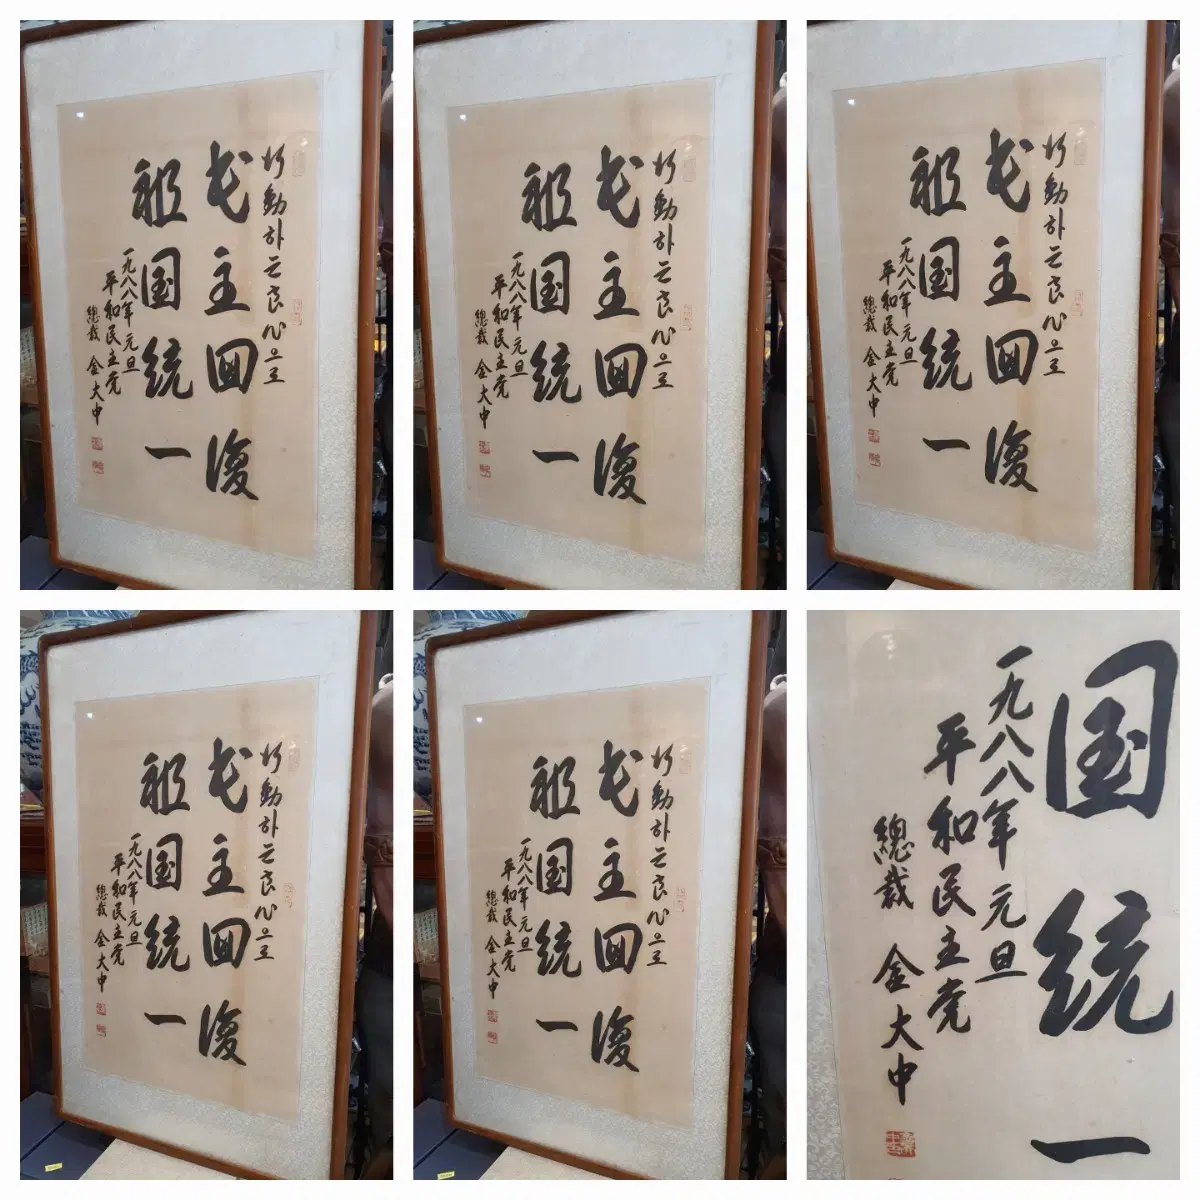 行動하는良心으로
民主回復
祖国統一
一九八八年元旦
平和民主党
總裁 金大中
行動하는良心으로
民主回復
祖国統一
一九八八年元旦
平和民主党
總裁 金大中
行動하는良心으로
民主回復
祖国統一
一九八八年元旦
平和民主党
總裁 金大中
行動하는良心으로
民主回復
祖国統一
一九八八年元旦
平和民主党
總裁 金大中
行動하는良心으로
民主回復
祖国統一
一九八八年元旦
平和民主党
總裁 金大中
国統一
一九八八年元旦
平和民主党
總裁 金大中